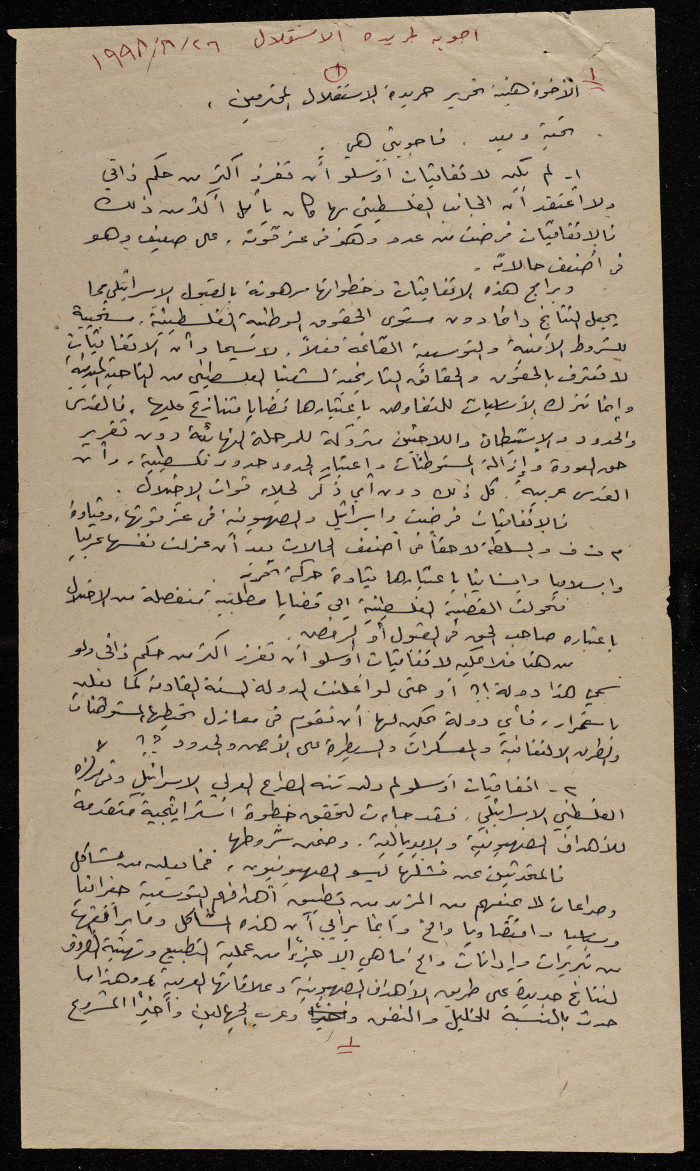 اجوبه لجريدة الاستقلال ٢٦/٣/١٩٩٨
١
١
الأخوة هيئة تحرير جريدة الاستقلال المحترمين ،
تحية وبعد . فأجوبتي هي .
١- لم يكن لاتفاقيات أوسلو أن تفرز أكثر من حكم ذاتي
ولا أعتقد أن الجانب الفلسطيني بها كان يأمل أكثر من ذلك
فالاتفاقيات فرضت من عدو وهو في عز قوته ، على ضعيف وهو
في أضعف حالاته .
وبرامج هذه الاتفاقيات وخطواتها مرهونة بالقبول الاسرائيلي مما
يجعل النتائج دائما دون مستوى الحقوق الوطنية الفلسطينية ، مستجيبة
للشروط الأمنية والتوسعية القائمة فعلاً ، لا سيما وأن الاتفاقيات
لا تعترف بالحقوق والحقائق التاريخية لشعبنا الفلسطيني من الناحية المبدئية
وإنما تترك الأساسيات للتفاوض باعتبارها قضايا متنازع عليها ، فالقدس
والحدود والاستيطان واللاجئون متروكة للمرحلة النهائية دون تقرير
حق العودة وإزالة المستوطنات واعتبار الحدود حدود فلسطينية ، وأن
القدس عربية . كل ذلك دون أي ذكر لجلاء قوات الاحتلال .
فالاتفاقيات فرضت واسرائيل والصهيونية في عز قوتها ، وقيادة
م ت ف والسلطة لاحقاً في أضعف الحالات بعد أن عزلت نفسها عربيا
واسلاميا وإنسانيا باعتبارها قيادة حركة تحرر
فتحولت القضية الفلسطينية الى قضايا مطلبية منفصلة من الاحتلال
باعتباره صاحب الحق في القبول أو الرفض .
من هنا فلا يمكن لاتفاقيات أوسلو أن تفرز أكثر من حكم ذاتي ولو
سمي هذا دولة !؟ أو حتى لو أعلنت الدولة السنة القادمة كما يعلن
باستمرار ، فأي دولة يمكن لها أن تقوم في معازل تحيطها المستوطنات
والطرق الالتفافية والمعسكرات والسيطرة على الأرض والحدود ؟؟
٢- اتفاقيات أوسلو لم ولن تنه الصراع العربي الاسرائيلي ومركزه
الفلسطيني الاسرائيلي . فقد جاءت لتحقق خطوة استراتيجية متقدمة
للأهداف الصهيونية والامبريالية ، وضمن شروطها
فالمتحدثين عن فشلها ليسو الصهيونيون ، فما يعلن من مشاكل
وصراعات لا يمنعهم من المزيد من تطبيق أهدافهم التوسعية جغرافيا
وسياسيا واقتصاديا والخ وإنما برأيي أن هذه المشاكل وما يرافقها
من تبريرات وإدانات والخ ما هي إلا جزءاً من عملية التطبيع وتهيئة الظروف
لنتائج جديدة على طريق الأهداف الصهيونية وعلاقاتها العربية . وهذا ما
حدث بالنسبة للخليل والنفق وعرب الجهالين وأخيراً المشروع
١